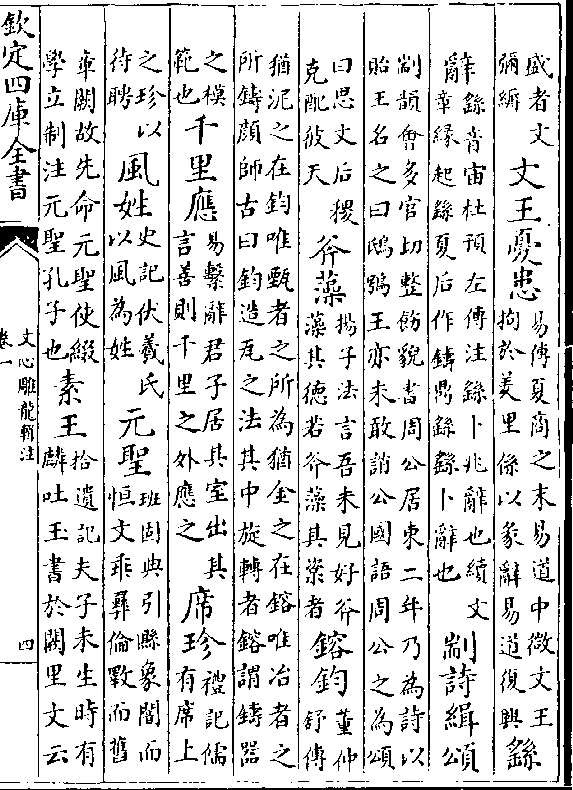 盛者文
彌縟
文王憂患
易傳夏商之末易道中微文王
拘於羑里係以彖辭易道復興
繇
辭
繇音宙杜預左傳注繇卜兆辭也續文
章緣起繇夏后作鑄鼎繇繇卜辭也
剬詩緝頌
剬韻會多官切整飭貌書周公居東二年乃為詩以
貽王名之曰鴟鴞王亦未敢誚公國語周公之為頌
曰思文后稷
克配彼天
斧藻
揚子法言吾未見好斧
藻其德若斧藻其楶者
鎔鈞
董仲
舒傳
猶泥之在鈞唯甄者之所為猶金之在鎔唯冶者之
所鑄顏師古曰鈞造瓦之法其中旋轉者鎔謂鑄器
之模
範也
千里應
易繫辭君子居其室出其
言善則千里之外應之
席珍
禮記儒
有席上
之珍以
待聘
風姓
史記伏羲氏
以風為姓
元聖
班固典引縣象闇而
恒文乖彝倫斁而舊
章闕故先命元聖使綴
學立制注元聖孔子也
素王
拾遺記夫子未生時有
麟吐玉書於闕里文云
欽定四庫全書
文心雕龍輯注
卷一
四